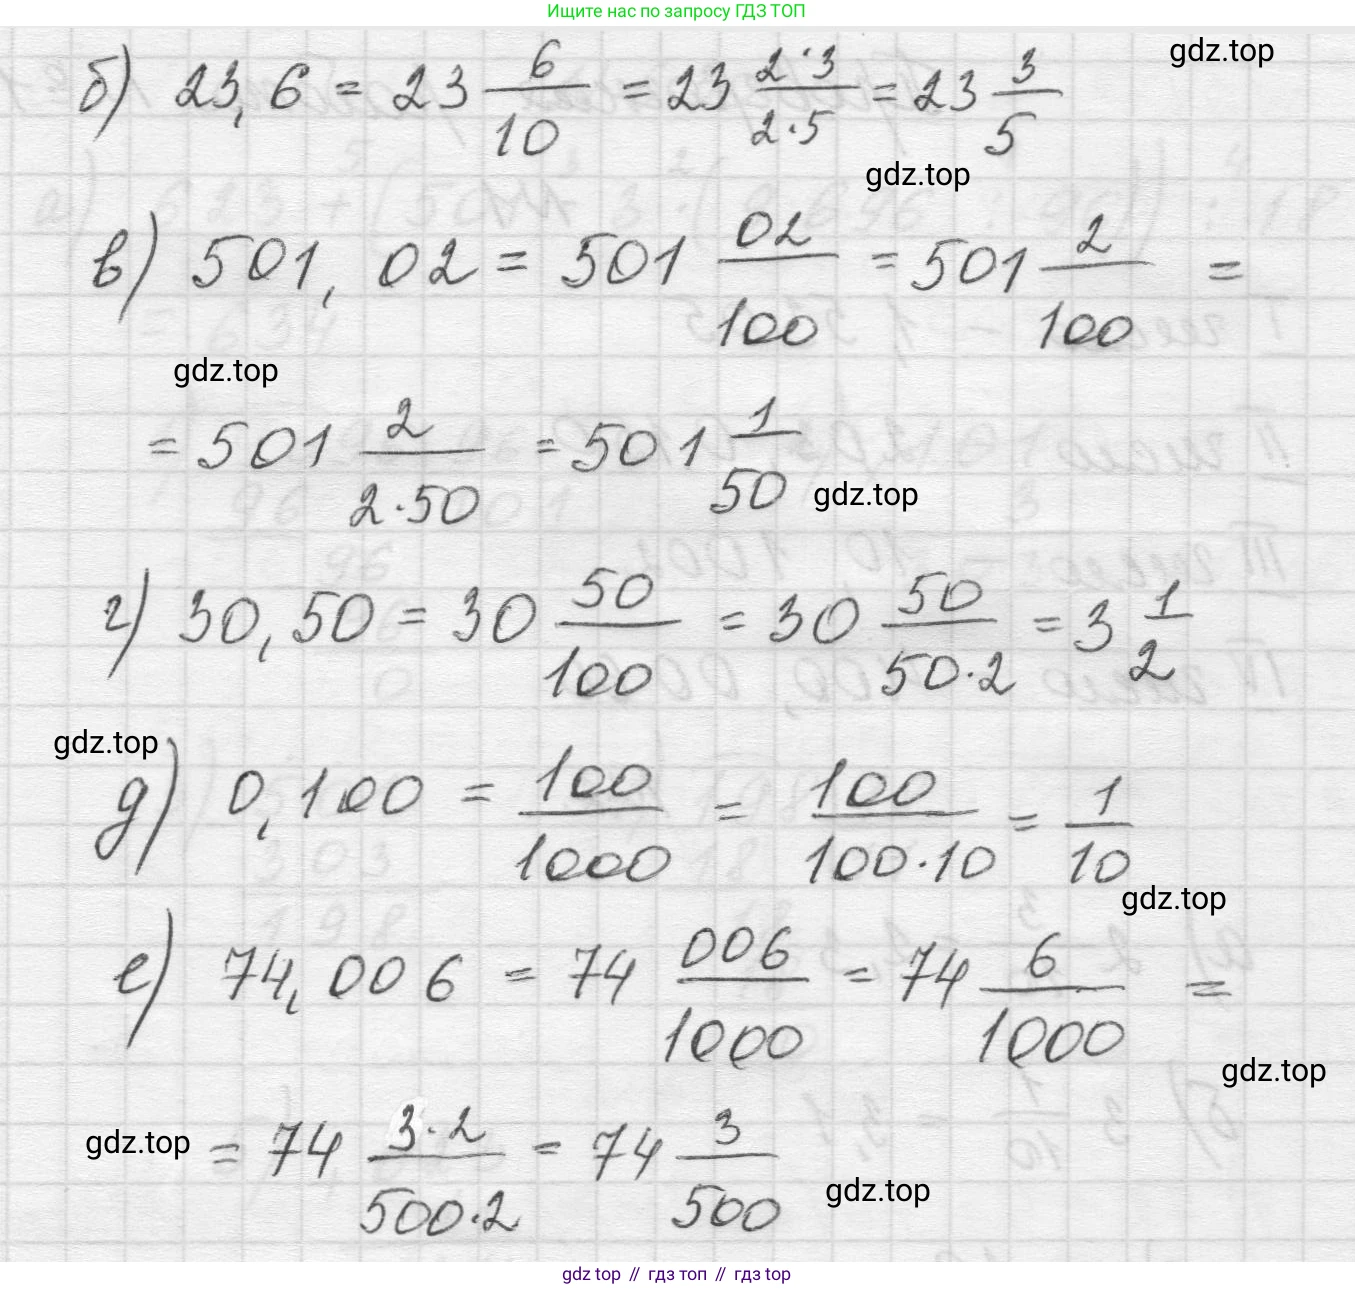 Ищите нас по запросу ГДЗ ТОП
gdz.top
б) 23,6 = 23 6/10 = 23 2·3/2·5 = 23 3/5
gdz.top
в) 501,02 = 501 02/100 = 501 2/100 =
gdz.top
= 501 2/2·50 = 501 1/50
gdz.top
г) 30,50 = 30 50/100 = 30 50/50·2 = 3 1/2
gdz.top
д) 0,100 = 100/1000 = 100/100·10 = 1/10
gdz.top
е) 74,006 = 74 006/1000 = 74 6/1000 =
gdz.top
gdz.top
= 74 3·2/500·2 = 74 3/500
gdz.top
gdz top // гдз топ // гдз top